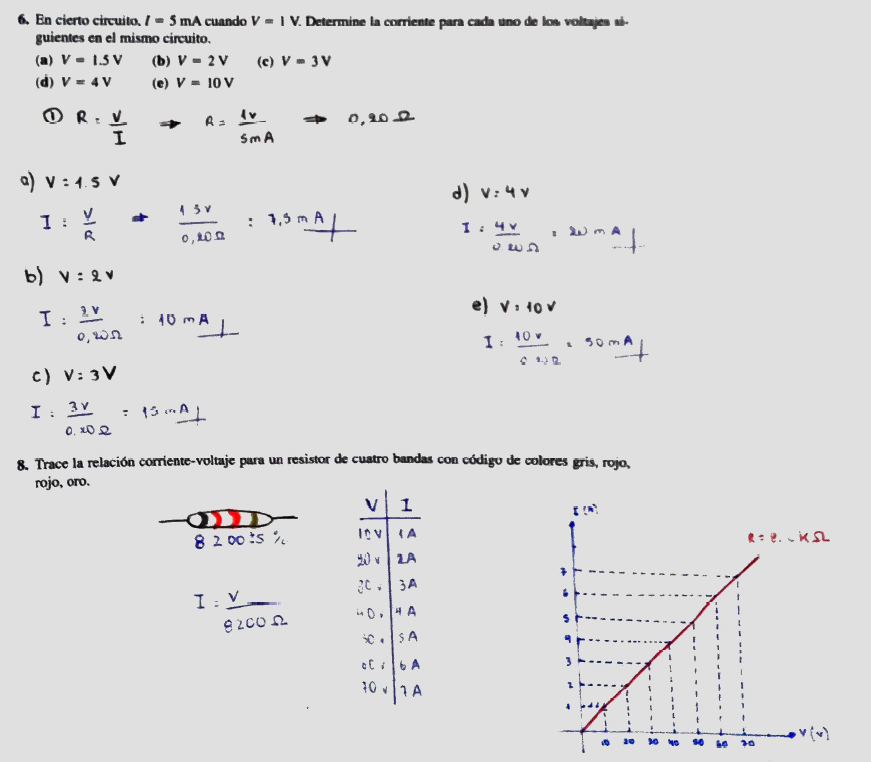 6. En cierto circuito, I = 5 mA cuando V = 1 V. Determine la corriente para cada uno de los voltajes si-
guientes en el mismo circuito.
(a) V = 1.5 V (b) V = 2 V (c) V = 3 V
(d) V = 4 V (e) V = 10 V
① R = V/I → R = 1v/5mA → 0,20 Ω
a) V = 1.5 V
I = V/R → 1.5v/0,20Ω = 7,5 mA
b) V = 2v
I = 2v/0,20Ω = 10 mA
c) V = 3V
I = 3v/0.20Ω = 15 mA
d) V = 4v
I = 4v/0.20Ω = 20 mA
e) V = 10v
I = 10v/ = 50mA
8. Trace la relación corriente-voltaje para un resistor de cuatro bandas con código de colores gris, rojo,
rojo, oro.
8 2 00 ±5 %
I = V/8200 Ω
V I
10V 1A
20v 2A
30v 3A
40v 4A
50v 5A
60v 6A
70v 7A
I (A)
R = 8. KΩ
7
6
5
4
3
2
1
10 20 30 40 50 60 70
V (v)